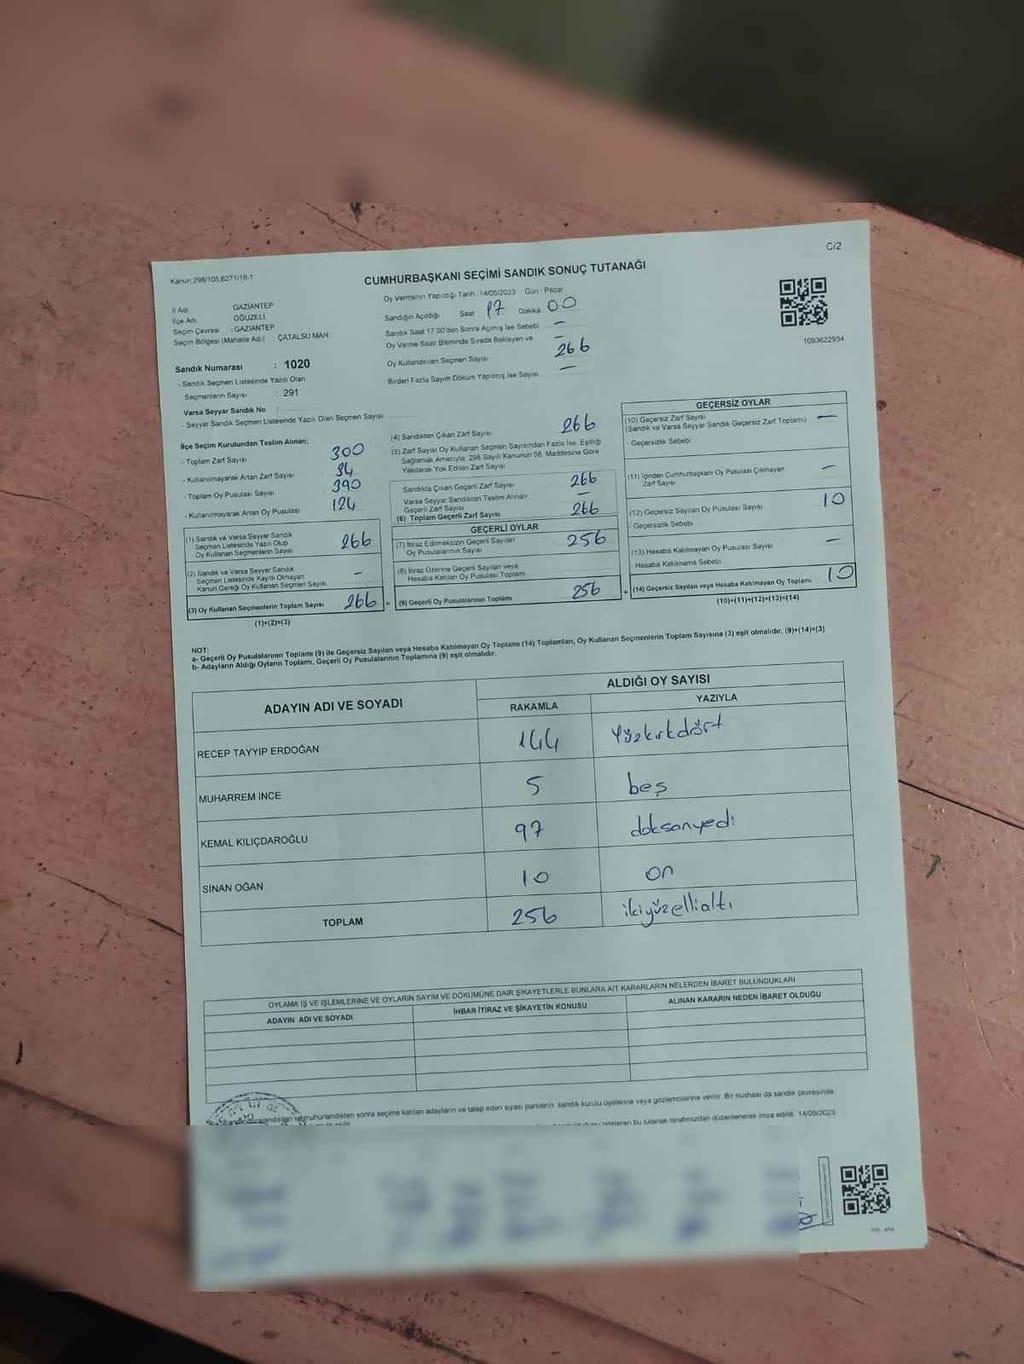 C/2
Kanun:298/105,6271/18-1
CUMHURBAŞKANI SEÇİMİ SANDIK SONUÇ TUTANAĞI
İl Adı GAZİANTEP
İlçe Adı OĞUZELİ
Seçim Çevresi : GAZİANTEP
Seçim Bölgesi (Mahalle Adı) : ÇATALSU MAH.
Sandık Numarası : 1020
- Sandık Seçmen Listesinde Yazılı Olan
Seçmenlerin Sayısı : 291
Varsa Seyyar Sandık No :
- Seyyar Sandık Seçmen Listesinde Yazılı Olan Seçmen Sayısı
Oy Vermenin Yapıldığı Tarih :14/05/2023 Gün : Pazar
Sandığın Açıldığı Saat 17 Dakika 00
Sandık Saat 17.00'den Sonra Açılmış İse Sebebi —
Oy Verme Saati Bitiminde Sırada Bekleyen ve —
Oy Kullandırılan Seçmen Sayısı 266
Birden Fazla Sayım Döküm Yapılmış İse Sayısı —
1093622934
İlçe Seçim Kurulundan Teslim Alınan;
- Toplam Zarf Sayısı 300
- Kullanılmayarak Artan Zarf Sayısı 34
- Toplam Oy Pusulası Sayısı 390
- Kullanılmayarak Artan Oy Pusulası 124
(1) Sandık ve Varsa Seyyar Sandık
Seçmen Listesinde Yazılı Olup
Oy Kullanan Seçmenlerin Sayısı 266
(2) Sandık ve Varsa Seyyar Sandık
Seçmen Listesinde Kayıtlı Olmayan
Kanun Gereği Oy Kullanan Seçmen Sayısı —
(3) Oy Kullanan Seçmenlerin Toplam Sayısı 266
(1)+(2)=(3)
(4) Sandıktan Çıkan Zarf Sayısı 266
(5) Zarf Sayısı Oy Kullanan Seçmen Sayısından Fazla İse, Eşitliği
Sağlamak Amacıyla, 298 Sayılı Kanunun 98. Maddesine Göre
Yakılarak Yok Edilen Zarf Sayısı
Sandıkta Çıkan Geçerli Zarf Sayısı 266
Varsa Seyyar Sandıktan Teslim Alınan
Geçerli Zarf Sayısı —
(6) Toplam Geçerli Zarf Sayısı 266
GEÇERLİ OYLAR
(7) İtiraz Edilmeksizin Geçerli Sayılan
Oy Pusulalarının Sayısı 256
(8) İtiraz Üzerine Geçerli Sayılan veya
Hesaba Katılan Oy Pusulası Toplamı
= (9) Geçerli Oy Pusulalarının Toplamı 256
GEÇERSİZ OYLAR
(10) Geçersiz Zarf Sayısı —
(Sandık ve Varsa Seyyar Sandık Geçersiz Zarf Toplamı)
- Geçersizlik Sebebi
(11) İçinden Cumhurbaşkanı Oy Pusulası Çıkmayan —
Zarf Sayısı
(12) Geçersiz Sayılan Oy Pusulası Sayısı 10
- Geçersizlik Sebebi
(13) Hesaba Katılmayan Oy Pusulası Sayısı —
- Hesaba Katılmama Sebebi
+ (14) Geçersiz Sayılan veya Hesaba Katılmayan Oy Toplamı 10
(10)+(11)+(12)+(13)=(14)
NOT:
a- Geçerli Oy Pusulalarının Toplamı (9) ile Geçersiz Sayılan veya Hesaba Katılmayan Oy Toplamı (14) Toplamları, Oy Kullanan Seçmenlerin Toplam Sayısına (3) eşit olmalıdır. (9)+(14)=(3)
b- Adayların Aldığı Oyların Toplamı, Geçerli Oy Pusulalarının Toplamına (9) eşit olmalıdır.
ADAYIN ADI VE SOYADI ALDIĞI OY SAYISI
RAKAMLA YAZIYLA
RECEP TAYYİP ERDOĞAN 144 Yüzkırkdört
MUHARREM İNCE 5 beş
KEMAL KILIÇDAROĞLU 97 doksanyedi
SİNAN OĞAN 10 on
TOPLAM 256 ikiyüzellialtı
OYLAMA İŞ VE İŞLEMLERİNE VE OYLARIN SAYIM VE DÖKÜMÜNE DAİR ŞİKAYETLERLE BUNLARA AİT KARARLARIN NELERDEN İBARET BULUNDUKLARI
ADAYIN ADI VE SOYADI İHBAR İTİRAZ VE ŞİKAYETİN KONUSU ALINAN KARARIN NEDEN İBARET OLDUĞU
mühürlendikten sonra seçime katılan adayların ve talep eden siyasi partilerin sandık kurulu üyelerine veya gözlemcilerine verilir. Bir nüshası da sandık çevresinde
bu tutanak tarafımızdan düzenlenerek imza edildi. 14/05/2023